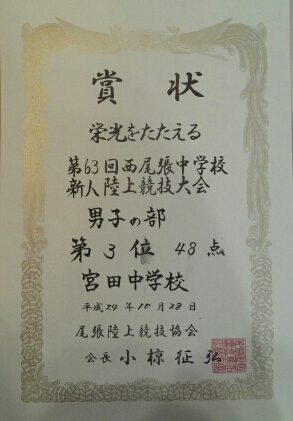 賞状
栄光をたたえる
第63回西尾張中学校
新人陸上競技大会
男子の部
第3位 48点
宮田中学校
平成24年10月28日
尾張陸上競技協会
会長 小椋征弘